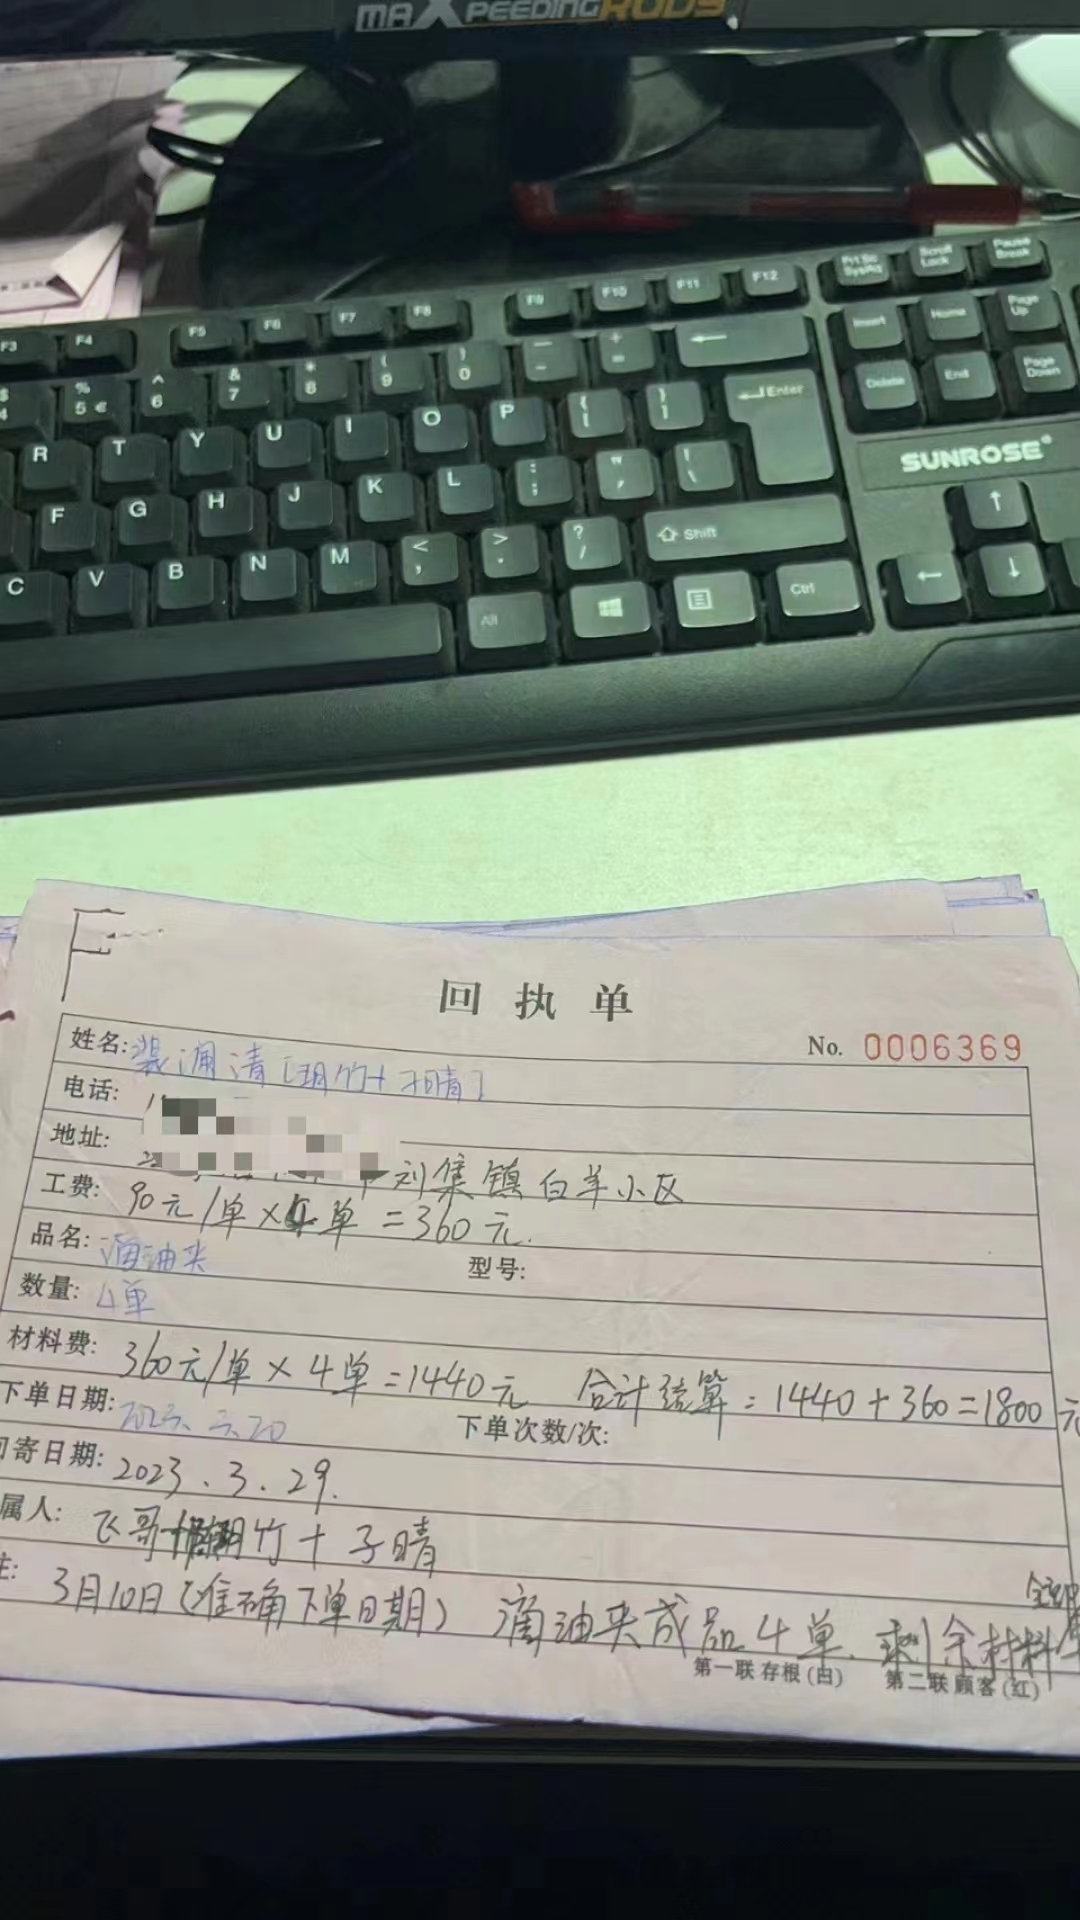 MAXPEEDINGRODS
F3 F4 F5 F6 F7 F8 F9 F10 F11 F12 PrtSc SysRq Scroll Lock Pause Break
$ 4 % 5 € ^ 6 & 7 * 8 ( 9 ) 0 — - + = ← Insert Home Page Up
R T Y U I O P { [ } ] Enter Delete End Page Down
F G H J K L : ; " , | \
SUNROSE®
C V B N M < , > . ? / Shift ↑
Alt Ctrl ← ↓
回执单
No. 0006369
姓名: 裴澜清 [玥竹+子晴]
电话:
地址: 刘集镇白羊小区
工费: 90元/单×4单=360元.
品名: 滴油夹 型号:
数量: 4单
材料费: 360元/单×4单=1440元 合计结算:1440+360=1800元
下单日期: 3.20 下单次数/次:
寄日期: 2023.3.29.
属人: 飞哥+ 竹+子晴
注: 3月10日(准确下单日期) 滴油夹成品4单. 剩余材料
第一联 存根(白) 第二联 顾客(红)